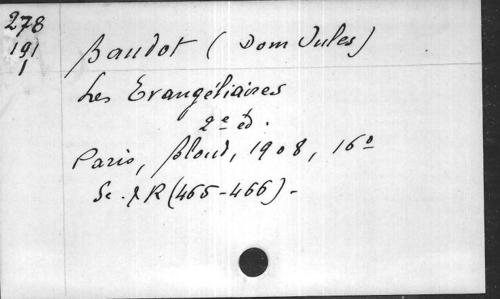 278
191
1
Baudot (Dom Jules)
Les Evangéliaires
2e éd.
Paris, Bloud, 1908, 16º
Sc. & R (465-466).